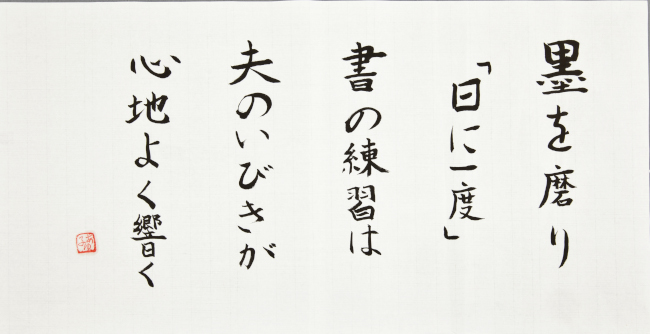 墨を磨り
「日に一度」
書の練習は
夫のいびきが
心地よく響く